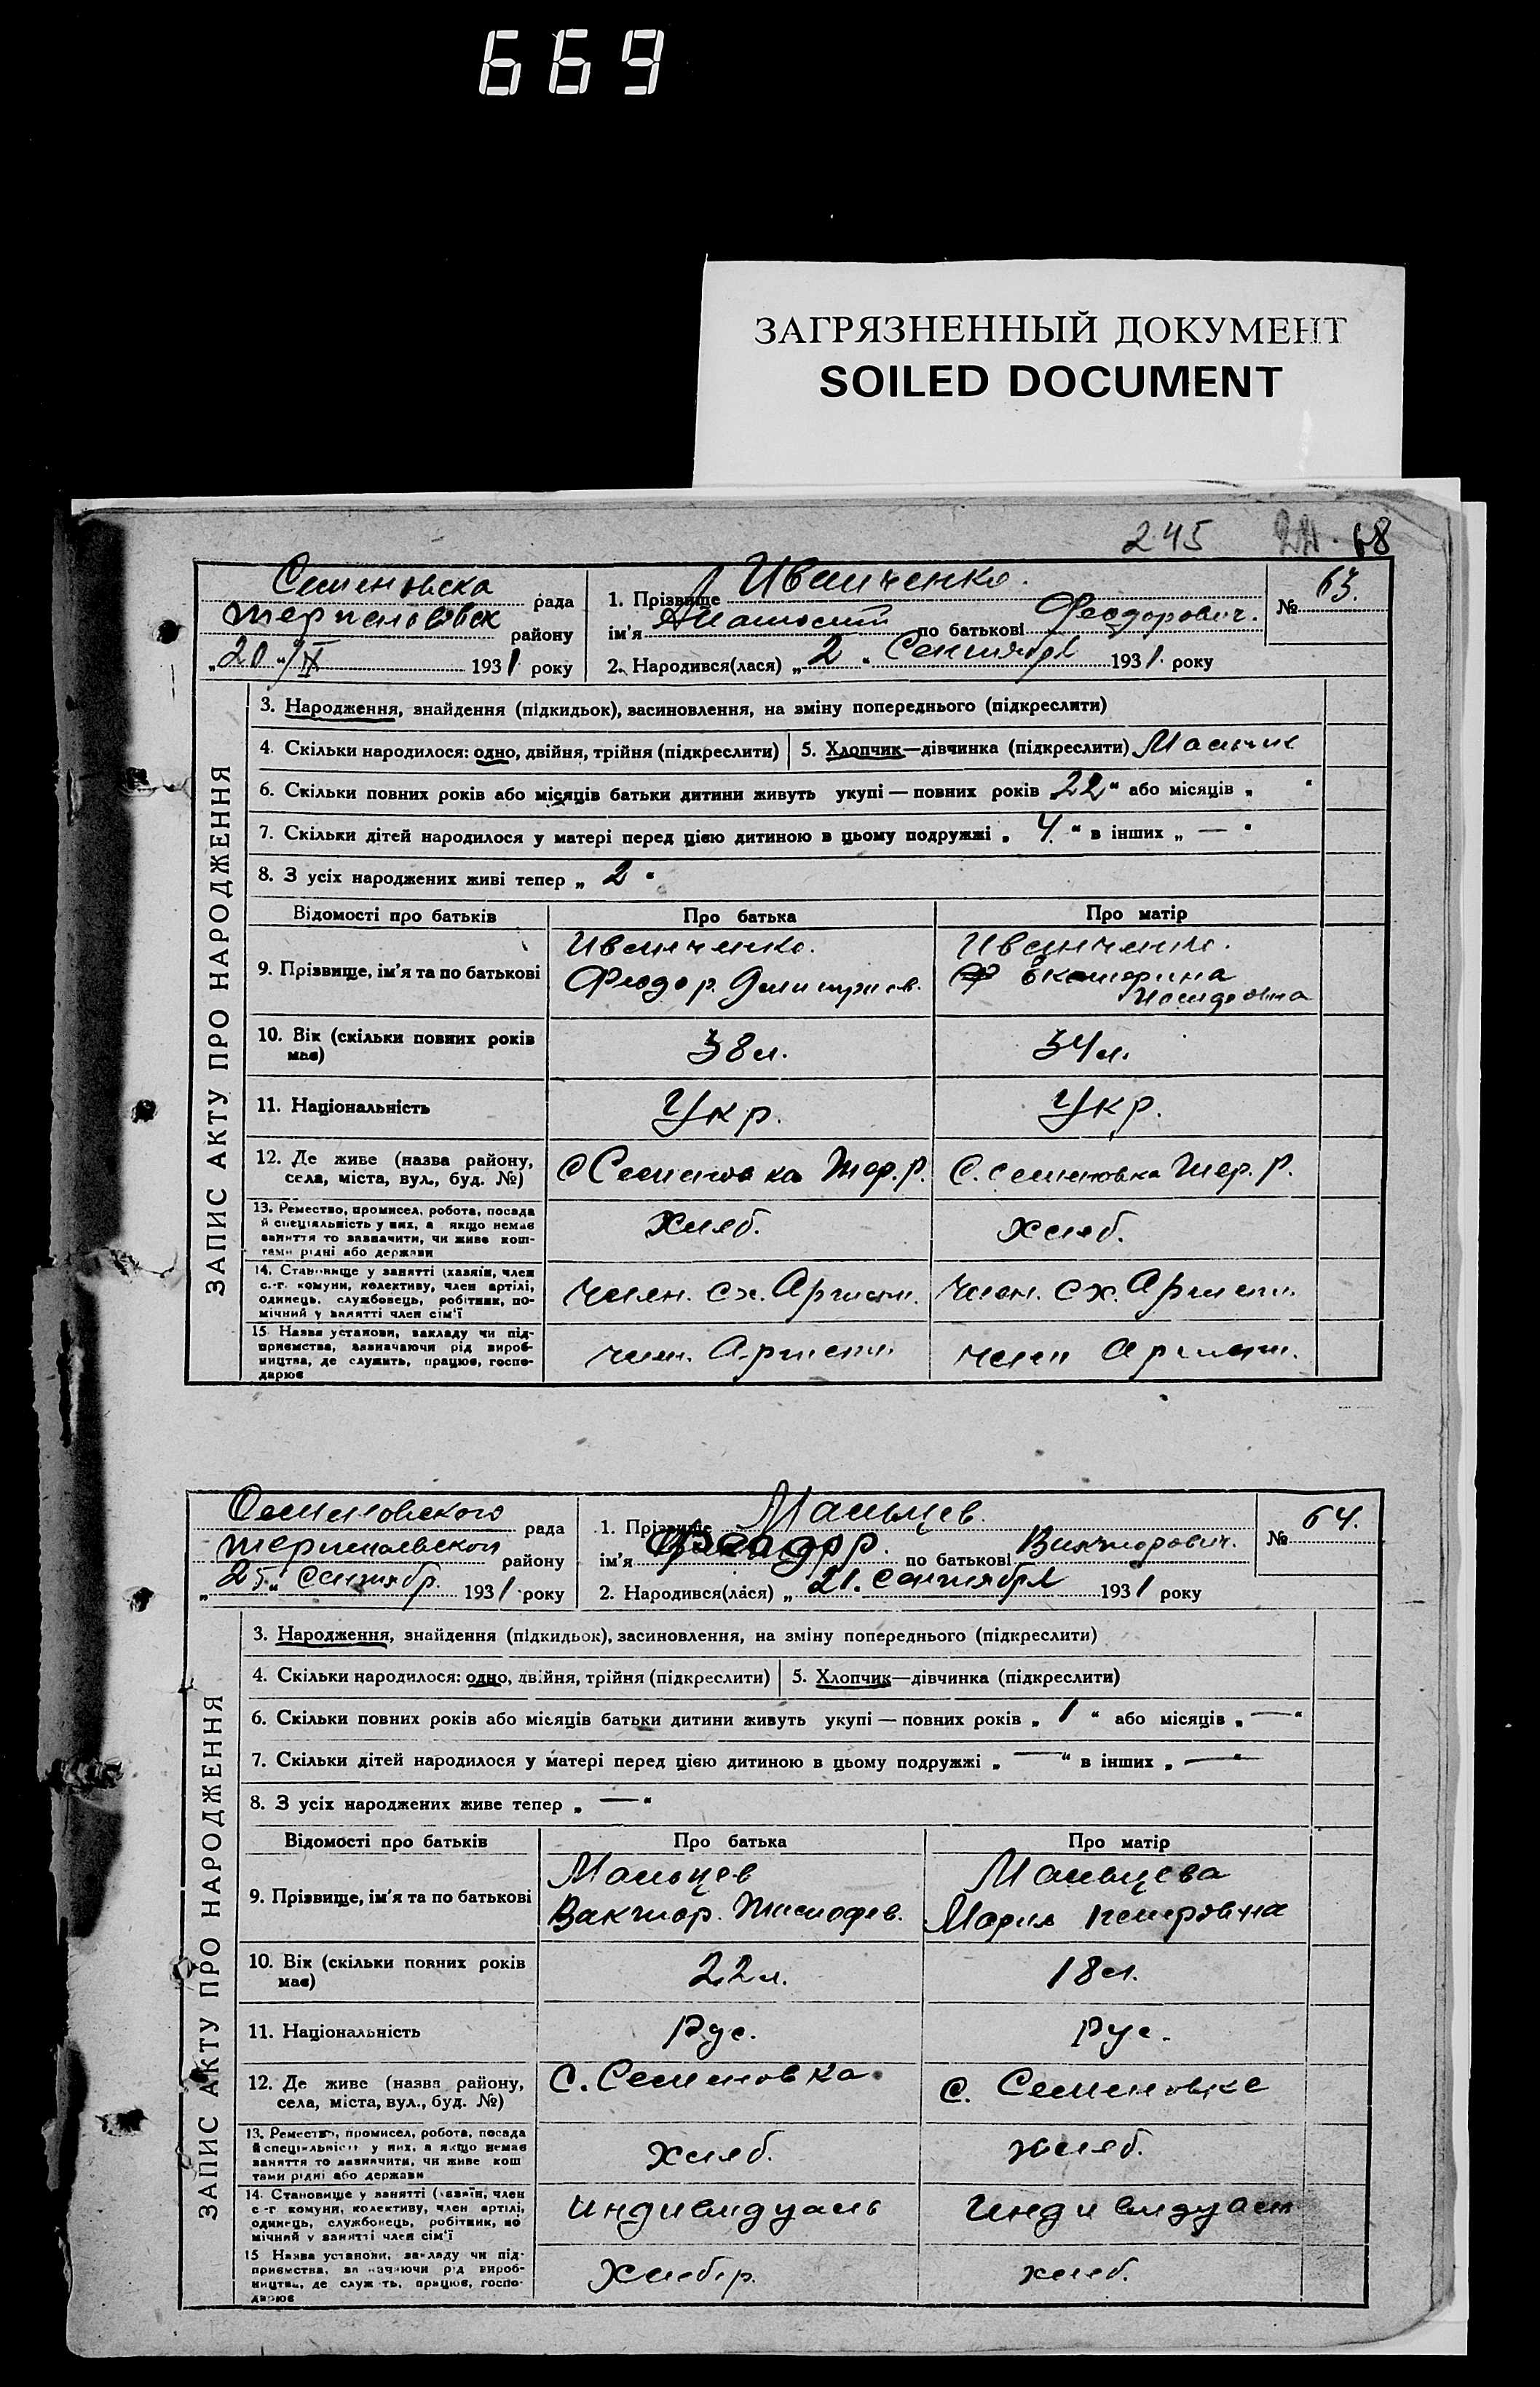 669
ЗАГРЯЗНЕННЫЙ ДОКУМЕНТ
SOILED DOCUMENT
245 68
ЗАПИС АКТУ ПРО НАРОДЖЕННЯ
Семеновска рада
район​у
„20“/IX 1931 року
1. Прізвище Иванченко.
ім'я Анатолий по батькові Феодорович.
№ 63.
2. Народився(лася) „2“ Сентября 1931. року
3. Народження, знайдення (підкидьок), засиновлення, на зміну попереднього (підкреслити)
4. Скільки народилося: одно, двійня, трійня (підкреслити) 5. Хлопчик—дівчинка (підкреслити) Мальчик
6. Скільки повних років або місяців батьки дитини живуть укупі — повних років „22“ або місяців „ “
7. Скільки дітей народилося у матері перед цією дитиною в цьому подружжі „4.“ в інших „—“
8. З усіх народжених живі тепер „2“
Відомості про батьків Про батька Про матір
9. Прізвище, ім'я та по батькові
Иванченко. Иванченко.
Феодор. Димитриев. Екатерина
10. Вік (скільки повних років має) 38 л. 34 л.
11. Національність Укр. Укр.
12. Де живе (назва району, села, міста, вул., буд. №) С Семеновка Тер. Р. С. Семеновка Тер. Р.
13. Ремество, промисел, робота, посада
й спеціяльність у них, а якщо немає
заняття то зазначити, чи живе кош-
тами рідні або держави
Хлеб. хлеб.
14. Становище у занятті (хазяїн, член
с.-г. комуни, колективу, член артілі,
одинець, службовець, робітник, по-
мічний у занятті член сім'ї
член. сх. Артели. член. сх. Артели.
15. Назва установи, закладу чи під-
приємства, зазначаючи рід вироб-
ництва, де служить, працює, госпо-
дарює
член. Артели. член Артели.
ЗАПИС АКТУ ПРО НАРОДЖЕННЯ
Семеновского рада
району
„25.“ Сентябр. 1931 року
1. Прізвище Мальцев.
ім'я Феодор. по батькові Викторович.
№ 64.
2. Народився(лася) „21. Сентября 1931 року
3. Народження, знайдення (підкидьок), засиновлення, на зміну попереднього (підкреслити)
4. Скільки народилося: одно, двійня, трійня (підкреслити) 5. Хлопчик—дівчинка (підкреслити)
6. Скільки повних років або місяців батьки дитини живуть укупі — повних років „1“ або місяців „—“
7. Скільки дітей народилося у матері перед цією дитиною в цьому подружжі „—“ в інших „—“
8. З усіх народжених живе тепер „—“
Відомості про батьків Про батька Про матір
9. Прізвище, ім'я та по батькові
Мальцев Мальцева
Виктор. Тимофев. Мария Петровна
10. Вік (скільки повних років має) 22 л. 18 л.
11. Національність Рус. Рус.
12. Де живе (назва району, села, міста, вул., буд. №) С. Семеновка С. Семеновке
13. Ремество, промисел, робота, посада
й спеціяльність у них, а якщо немає
заняття то зазначити, чи живе кош
тами рідні або держави
Хлеб. хлеб.
14. Становище у занятті (хазяїн, член
с-г комуни, колективу, член артілі,
одинець, службовець, робітник, по
мічний у занятті член сім'ї
индивидуаль индивидуал
15 Назва установи, закладу чи під-
приємства, зазначаючи рід вироб-
ництва, де служить, працює, госпо-
дарює
Хлебр. хлеб.